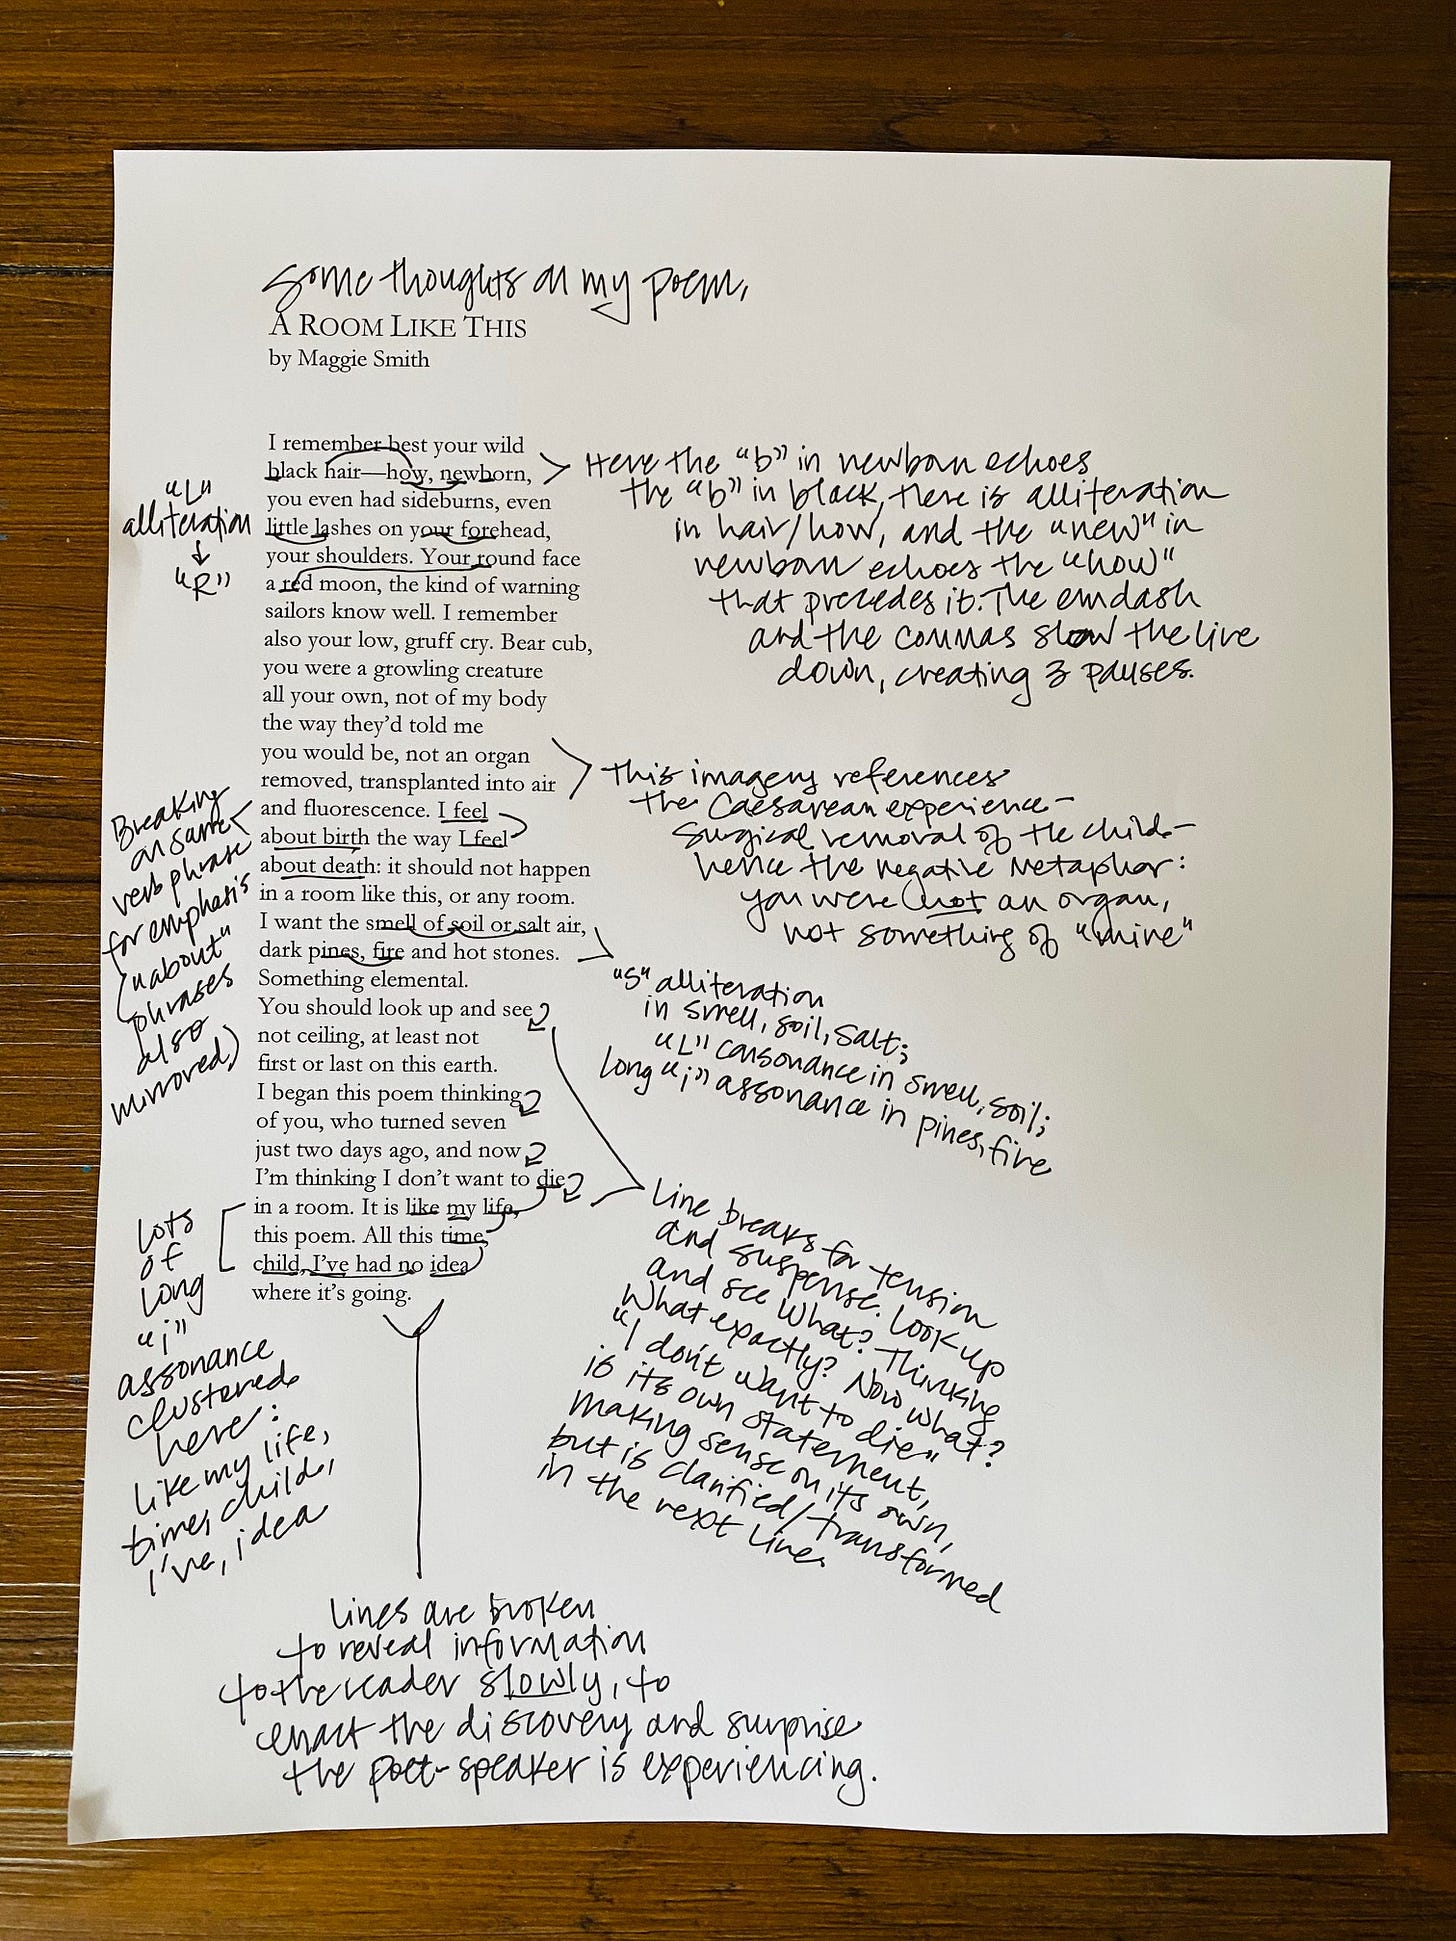 some thoughts on my poem,
A ROOM LIKE THIS
by Maggie Smith
I remember best your wild
black hair—how, newborn,
you even had sideburns, even
little lashes on your forehead,
your shoulders. Your round face
a red moon, the kind of warning
sailors know well. I remember
also your low, gruff cry. Bear cub,
you were a growling creature
all your own, not of my body
the way they'd told me
you would be, not an organ
removed, transplanted into air
and fluorescence. I feel
about birth the way I feel
about death: it should not happen
in a room like this, or any room.
I want the smell of soil or salt air,
dark pines, fire and hot stones.
Something elemental.
You should look up and see
not ceiling, at least not
first or last on this earth.
I began this poem thinking
of you, who turned seven
just two days ago, and now
I'm thinking I don't want to die
in a room. It is like my life,
this poem. All this time,
child, I've had no idea
where it's going.
"L"
alliteration
↓
"R"
Breaking
on same
verb phrase
for emphasis
("about"
phrases
also
mirrored)
lots
of
long
"i"
assonance
clustered
here:
like my life,
time, child,
I've, idea
Here the "b" in newborn echoes
the "b" in black, there is alliteration
in hair/how, and the "new" in
newborn echoes the "how"
that precedes it. The emdash
and the commas slow the line
down, creating 3 pauses.
This imagery references
the Caesarean experience—
surgical removal of the child—
hence the negative metaphor:
you were not an organ,
not something of "mine"
"S" alliteration
in smell, soil, salt;
"L" consonance in smell, soil;
long "i" assonance in pines, fire
Line breaks for tension
and suspense. Look up
and see what? Thinking
what exactly? Now what?
"I don't want to die"
is its own statement,
making sense on its own,
but is clarified/transformed
in the next line.
Lines are broken
to reveal information
to the reader slowly, to
enact the discovery and surprise
the poet-speaker is experiencing.